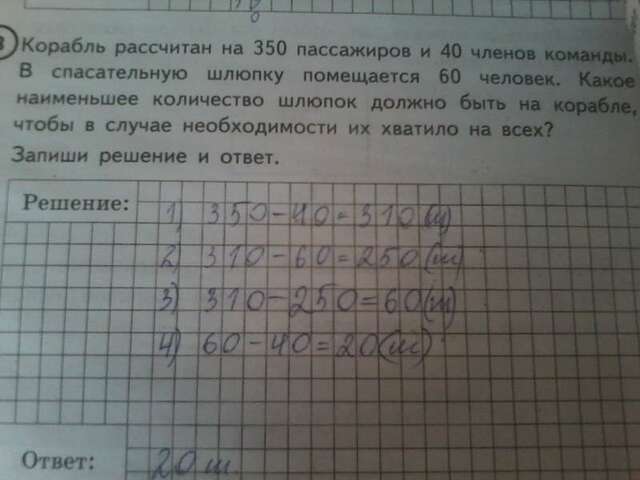 Корабль рассчитан на 350 пассажиров и 40 членов команды.
В спасательную шлюпку помещается 60 человек. Какое
наименьшее количество шлюпок должно быть на корабле,
чтобы в случае необходимости их хватило на всех?
Запиши решение и ответ.
Решение:
1) 350-40=310(ш)
2) 310-60=250(ш)
3) 310-250=60(ш)
4) 60-40=20(ш)
Ответ: 20 ш.